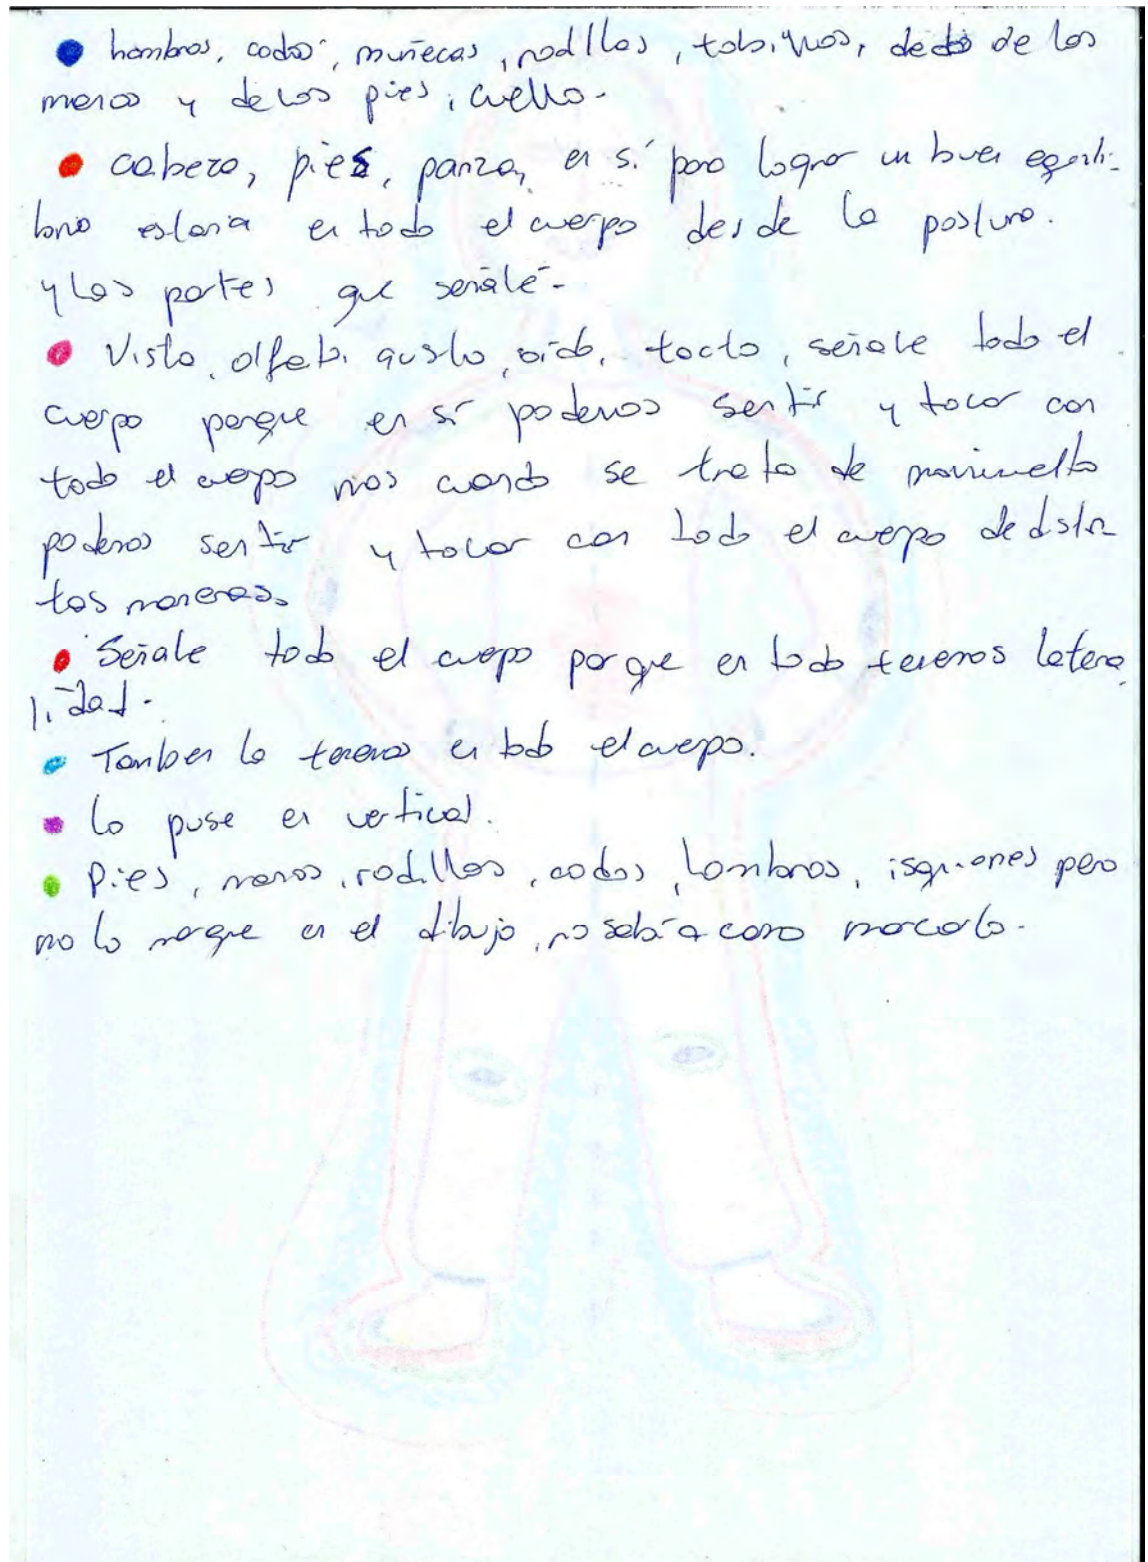 hombros, codos, muñecas, rodillas, tobillos, dedos de los
manos y de los pies, cuello.
cabeza, pies, panza, en sí para lograr un buen equili-
brio estaria en todo el cuerpo desde la postura.
y las partes que señalé-
Vista, olfato, gusto, oido, tacto, señale todo el
cuerpo porque en sí podemos sentir y tocar con
todo el cuerpo mas cuando se trata de movimiento
podemos sentir y tocar con todo el cuerpo de distin
tas maneras.
Señale todo el cuerpo porque en todo tenemos latera
lidad.
Tambien lo tenemos en todo el cuerpo.
Lo puse en vertical.
Pies, manos, rodillas, codos, hombros, isquiones pero
no lo marque en el dibujo, no sabía como marcarlo.